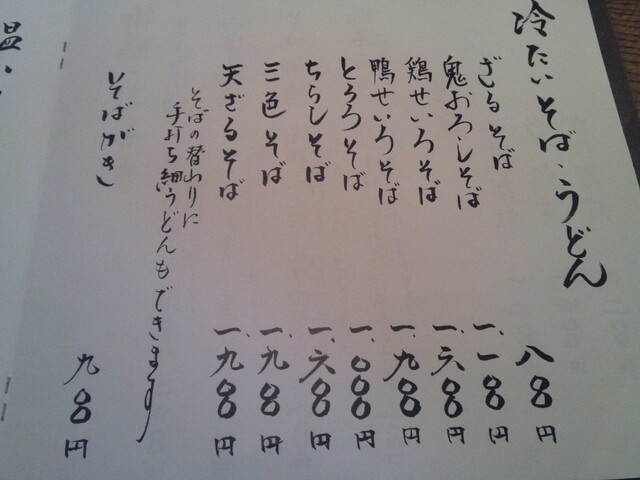 冷たいそば・うどん
ざるそば 八〇〇円
鬼おろしそば 一、一〇〇円
鶏せいろそば 一、六〇〇円
鴨せいろそば 一、九〇〇円
とろろそば 一、〇〇〇円
ちらしそば 一、六〇〇円
三色そば 一、九〇〇円
天ざるそば 一、九〇〇円
そばの替わりに
手打ち細うどんもできます
そばがき 九〇〇円
温